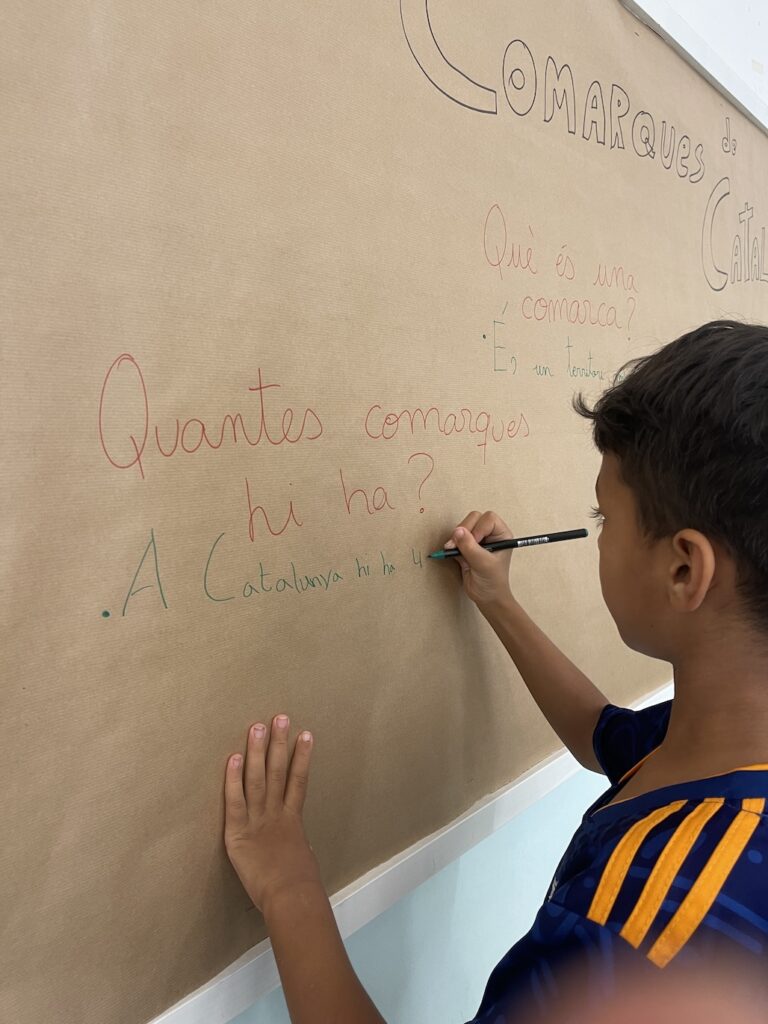 COMARQUES de
CATAL
Què és una
comarca?
·É, un territori
Quantes comarques
hi ha?
·A Catalunya hi ha 4